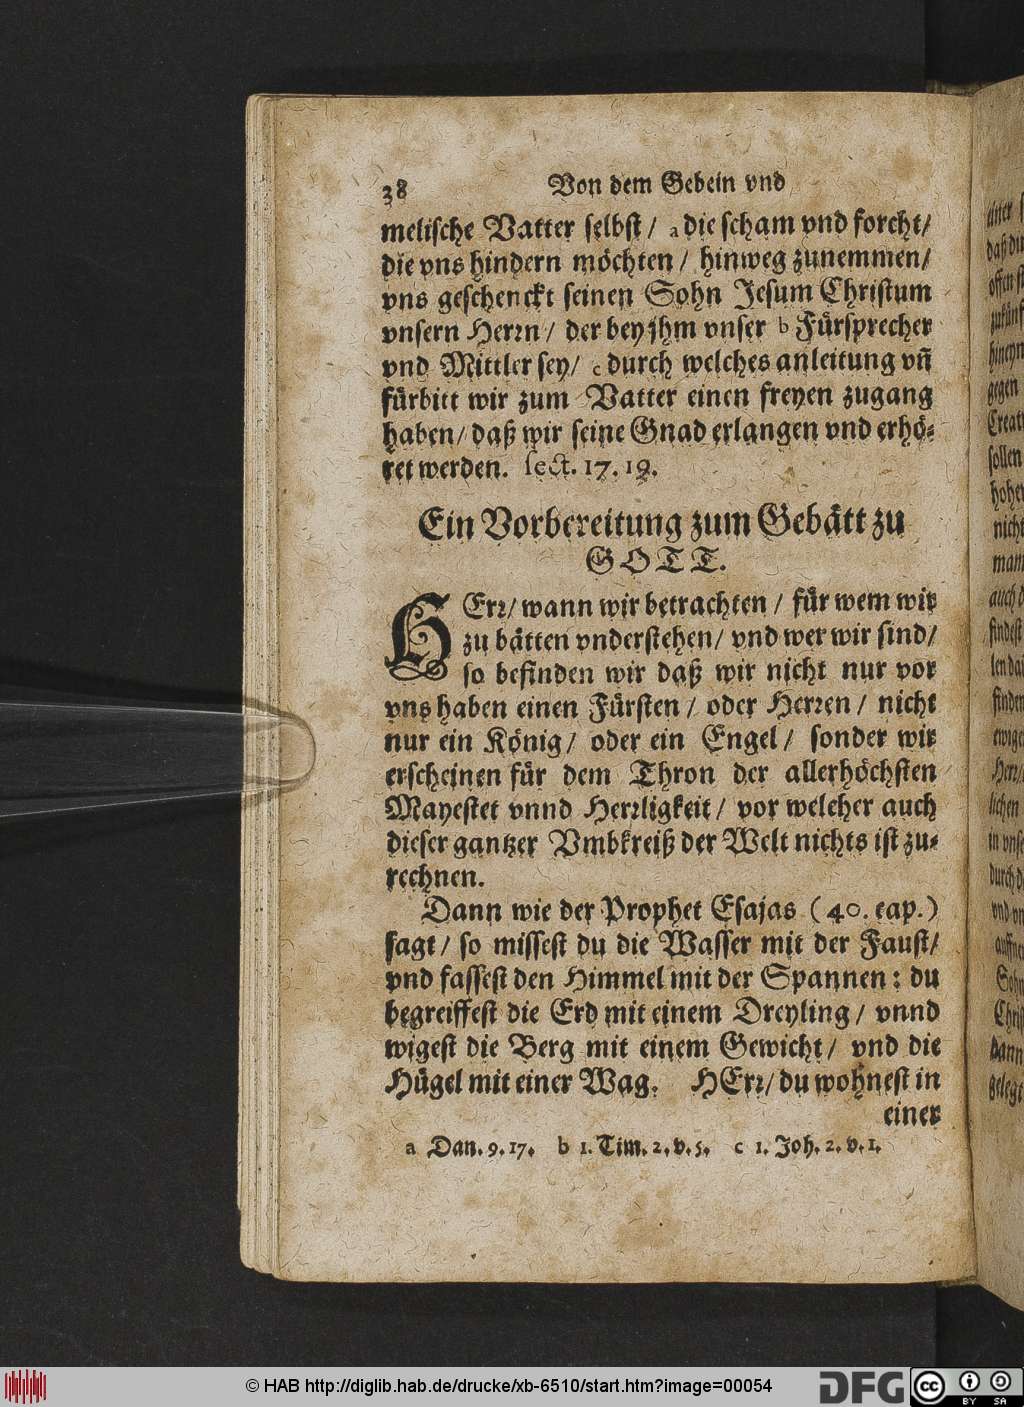 38 Von dem Gebein vnd
melische Vatter selbst / a die scham vnd forcht /
die vns hindern möchten / hinweg zunemmen /
vns geschenckt seinen Sohn Jesum Christum
vnsern Herrn / der bey jhm vnser b Fürsprecher
vnd Mittler sey / c durch welches anleitung vñ
fürbitt wir zum Vatter einen freyen zugang
haben / daß wir seine Gnad erlangen vnd erhö-
ret werden. sect. 17. 19.
Ein Vorbereitung zum Gebätt zu
GOTT.
HErr / wann wir betrachten / für wem wir
zu bätten vnderstehen / vnd wer wir sind /
so befinden wir daß wir nicht nur vor
vns haben einen Fürsten / oder Herren / nicht
nur ein König / oder ein Engel / sonder wir
erscheinen für dem Thron der allerhöchsten
Mayestet vnnd Herrligkeit / vor welcher auch
dieser gantzer Vmbkreiß der Welt nichts ist zu-
rechnen.
Dann wie der Prophet Esajas (40. cap.)
sagt / so missest du die Wasser mit der Faust /
vnd fassest den Himmel mit der Spannen : du
begreiffest die Erd mit einem Dreyling / vnnd
wigest die Berg mit einem Gewicht / vnd die
Hügel mit einer Wag. HErr / du wohnest in
einer
a Dan. 9. 17. b 1. Tim. 2. v. 5. c 1. Joh. 2. v. 1.
© HAB http://diglib.hab.de/drucke/xb-6510/start.htm?image=00054
DFG
cc BY SA